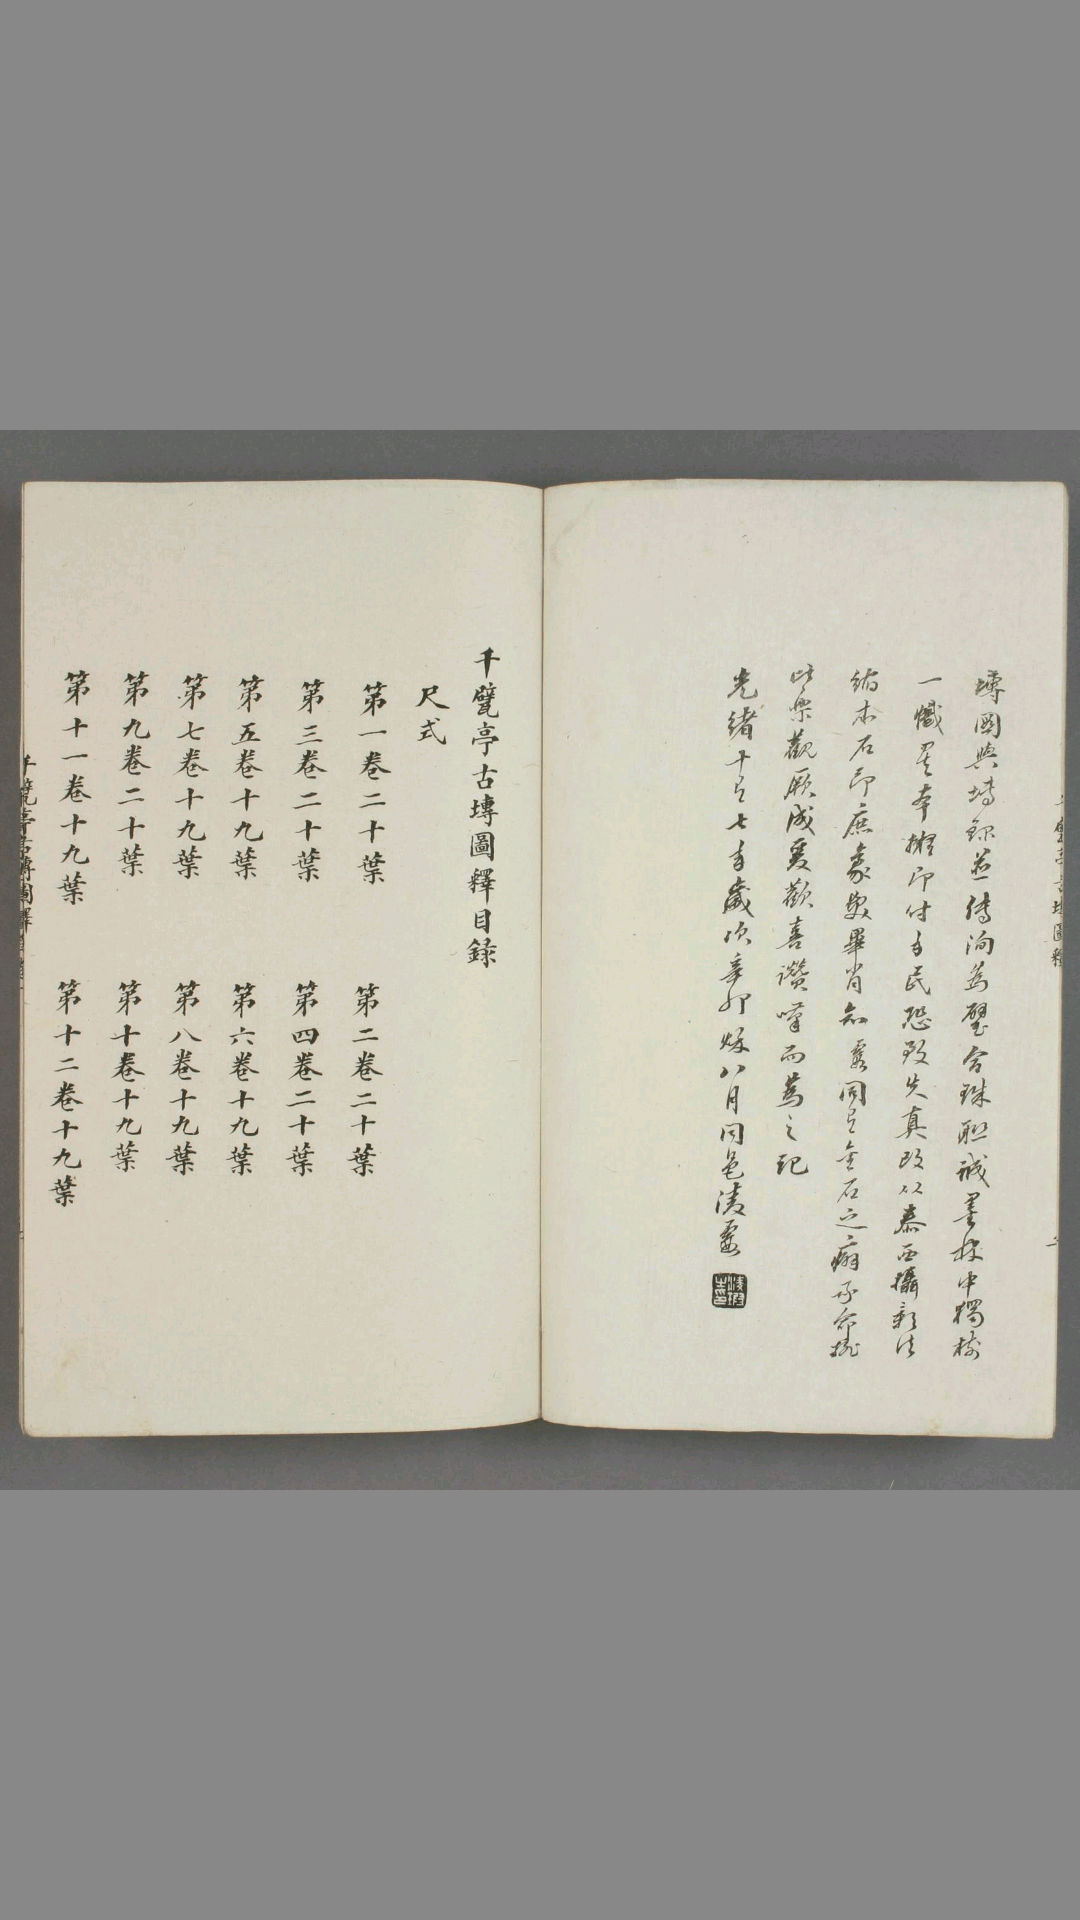 塼圖與塼錄並傳洵為璧合珠聯誠墨林中獨樹
一幟是本擬印付手民恐致失真改以泰西攝影法
縮本石印庶豪髮畢肖知霞同是金石之癖承命
此樂觀厥成爰歡喜讚嘆而為之記
光緒十有七年歲次辛卯秋八月同邑凌霞
千甓亭古塼圖釋目錄
尺式
第一卷二十葉　第二卷二十葉
第三卷二十葉　第四卷二十葉
第五卷十九葉　第六卷十九葉
第七卷十九葉　第八卷十九葉
第九卷二十葉　第十卷十九葉
第十一卷十九葉　第十二卷十九葉
千甓亭古塼圖釋